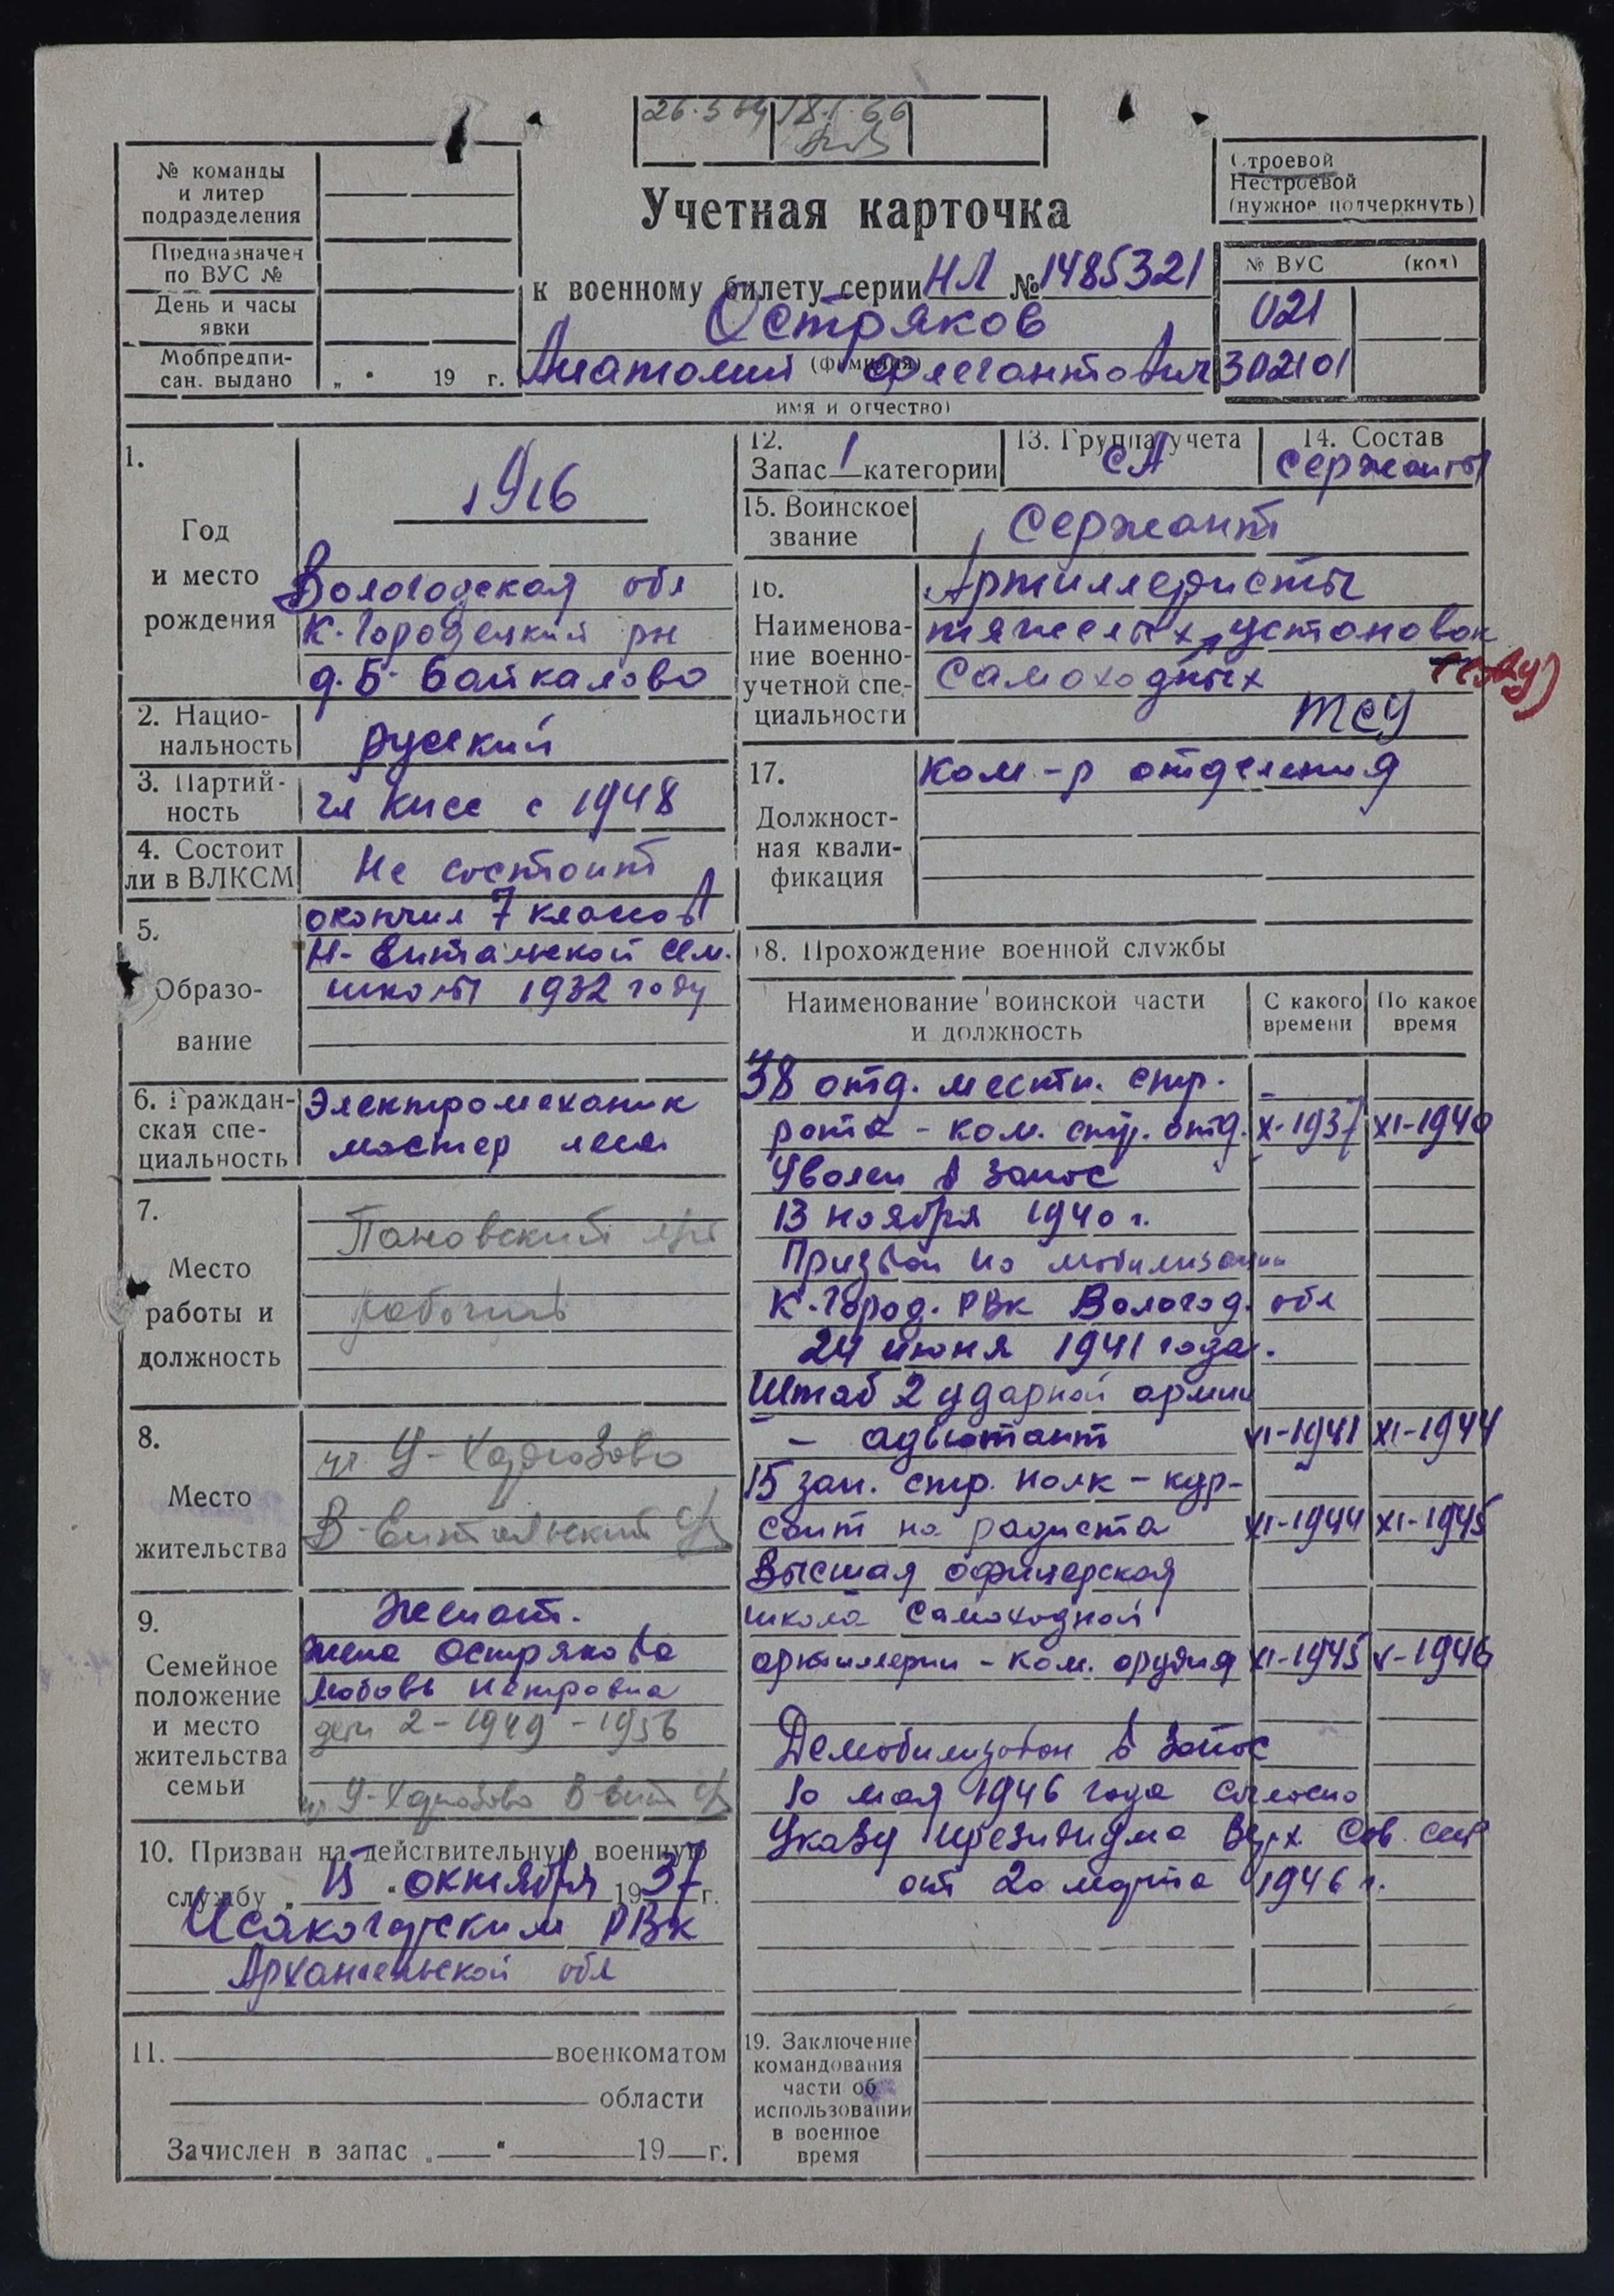 26.5.64 18.1.66
№ команды
и литер
подразделения
Предназначен
по ВУС №
День и часы
явки
Мобпредпи-
сан. выдано „ " 19 г.
Учетная карточка
к военному билету серии НЛ № 1485321
Остряков
(фамилия)
Анатолий Флегонтович
имя и отчество)
Строевой
Нестроевой
(нужное подчеркнуть)
№ ВУС (код)
021
302101
1.
Год
и место
рождения
1916
Вологодская обл
К. Городецкий рн
д. Б. Байкалово
2. Нацио-
нальность
русский
3. Партий-
ность
чл КПСС с 1948
4. Состоит
ли в ВЛКСМ
Не состоит
5.
Образо-
вание
окончил 7 классов
Н-Енталььской сем.
школы 1932 году
6. Граждан-
ская спе-
циальность
Электромеханик
мастер леса
7.
Место
работы и
должность
Пановский
рабочий
8.
Место
жительства
У-Харюзово
В-Ентальский
9.
Семейное
положение
и место
жительства
семьи
Женат.
жена Острякова
Любовь Петровна
дети 2-1949-1956
У-Харюзово В Ент
10. Призван на действительную военную
службу „15" октября 1937 г.
Исакогорским РВК
Архангельской обл
11. военкоматом
области
Зачислен в запас „ " 19 г.
12.
Запас 1 категории
13. Группа учета
СА
14. Состав
Сержанты
15. Воинское
звание
Сержант
16.
Наименова-
ние военно-
учетной спе-
циальности
Артиллеристы
тяжелых установок
самоходных
ТСУ
17.
Должност-
ная квали-
фикация
Ком-р отделения
18. Прохождение военной службы
Наименование воинской части
и должность
С какого
времени
По какое
время
38 отд. местн. стр.
рота - ком. стр. отд. X-1937 XI-1940
Уволен в запас
13 ноября 1940 г.
Призван по мобилизации
К.Город. РВК Вологод. обл
24 июня 1941 года.
Штаб 2 ударной армии
- адъютант VI-1941 XI-1944
15 зап. стр. полк - кур-
сант на радиста XI-1944 XI-1945
Высшая офицерская
школа самоходной
артиллерии - ком. орудия XI-1945 V-1946
Демобилизован в запас
10 мая 1946 года согласно
Указу президиума Верх. Сов. ССР
от 20 марта 1946 г.
19. Заключение
командования
части об
использовании
в военное
время